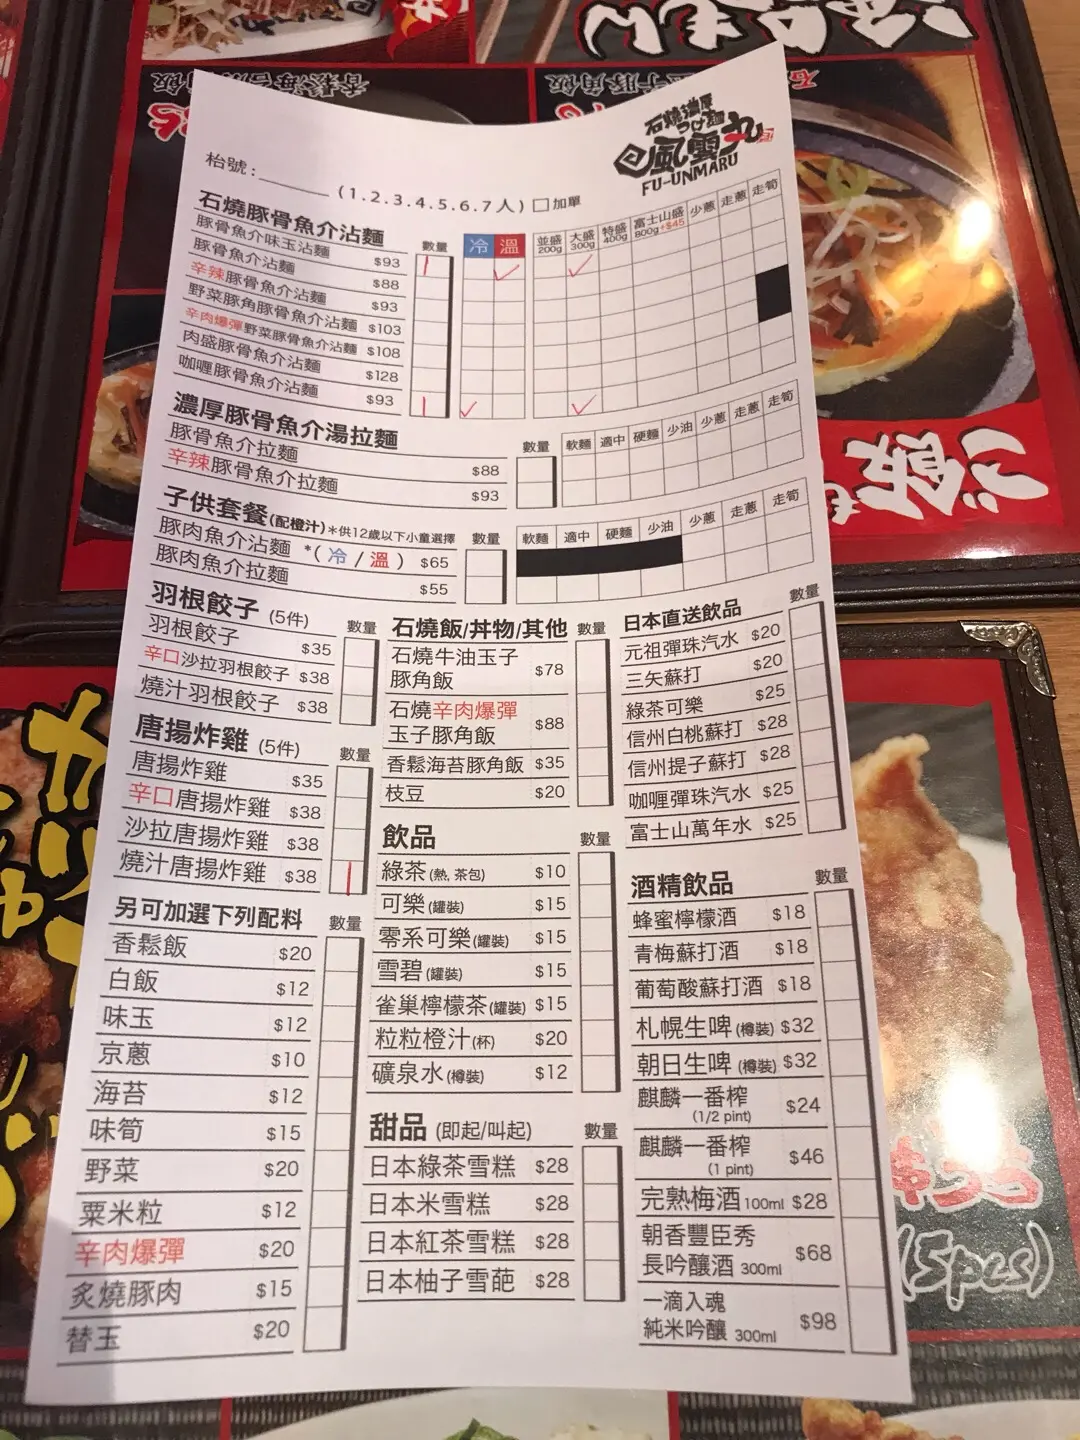 石燒濃厚
つけ麵
風雲丸
FU-UNMARU
枱號：
(1.2.3.4.5.6.7人) 加單
石燒豚骨魚介沾麵 數量 冷 溫 並盛 200g 大盛 300g 特盛 400g 富士山盛 800g +$45 少蔥 走蔥 走筍
豚骨魚介味玉沾麵 $93
豚骨魚介沾麵 $88
辛辣豚骨魚介沾麵 $93
野菜豚角豚骨魚介沾麵 $103
辛肉爆彈野菜豚骨魚介沾麵 $108
肉盛豚骨魚介沾麵 $128
咖喱豚骨魚介沾麵 $93
濃厚豚骨魚介湯拉麵 數量 軟麵 適中 硬麵 少油 少蔥 走蔥 走筍
豚骨魚介拉麵 $88
辛辣豚骨魚介拉麵 $93
子供套餐(配橙汁)*供12歲以下小童選擇 數量 軟麵 適中 硬麵 少油 少蔥 走蔥 走筍
豚肉魚介沾麵 *( 冷 / 溫 ) $65
豚肉魚介拉麵 $55
羽根餃子 (5件) 數量
羽根餃子 $35
辛口沙拉羽根餃子 $38
燒汁羽根餃子 $38
唐揚炸雞 (5件) 數量
唐揚炸雞 $35
辛口唐揚炸雞 $38
沙拉唐揚炸雞 $38
燒汁唐揚炸雞 $38
另可加選下列配料 數量
香鬆飯 $20
白飯 $12
味玉 $12
京蔥 $10
海苔 $12
味筍 $15
野菜 $20
粟米粒 $12
辛肉爆彈 $20
炙燒豚肉 $15
替玉 $20
石燒飯/丼物/其他 數量
石燒牛油玉子
豚角飯 $78
石燒辛肉爆彈
玉子豚角飯 $88
香鬆海苔豚角飯 $35
枝豆 $20
飲品 數量
綠茶(熱, 茶包) $10
可樂(罐裝) $15
零系可樂(罐裝) $15
雪碧(罐裝) $15
雀巢檸檬茶(罐裝) $15
粒粒橙汁(杯) $20
礦泉水(樽裝) $12
甜品 (即起/叫起) 數量
日本綠茶雪糕 $28
日本米雪糕 $28
日本紅茶雪糕 $28
日本柚子雪葩 $28
日本直送飲品 數量
元祖彈珠汽水 $20
三矢蘇打 $20
綠茶可樂 $25
信州白桃蘇打 $28
信州提子蘇打 $28
咖喱彈珠汽水 $25
富士山萬年水 $25
酒精飲品 數量
蜂蜜檸檬酒 $18
青梅蘇打酒 $18
葡萄酸蘇打酒 $18
札幌生啤(樽裝) $32
朝日生啤(樽裝) $32
麒麟一番榨
(1/2 pint) $24
麒麟一番榨
(1 pint) $46
完熟梅酒 100ml $28
朝香豐臣秀
長吟釀酒 300ml $68
一滴入魂
純米吟釀 300ml $98
(5pcs)